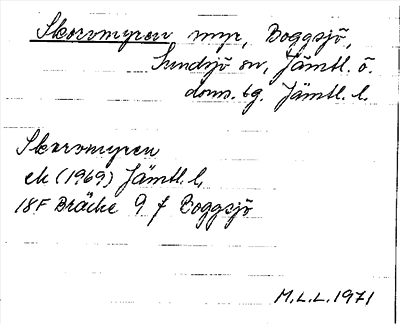 Skoromyren myr, Boggsjö,
Sundsjö sn, Jämtl. ö.
doms. tg. Jämtl. l.
Skoromyren
ek (1969) Jämtl. l.
18F Bräcke 9 f Boggsjö
M.L.L. 1971